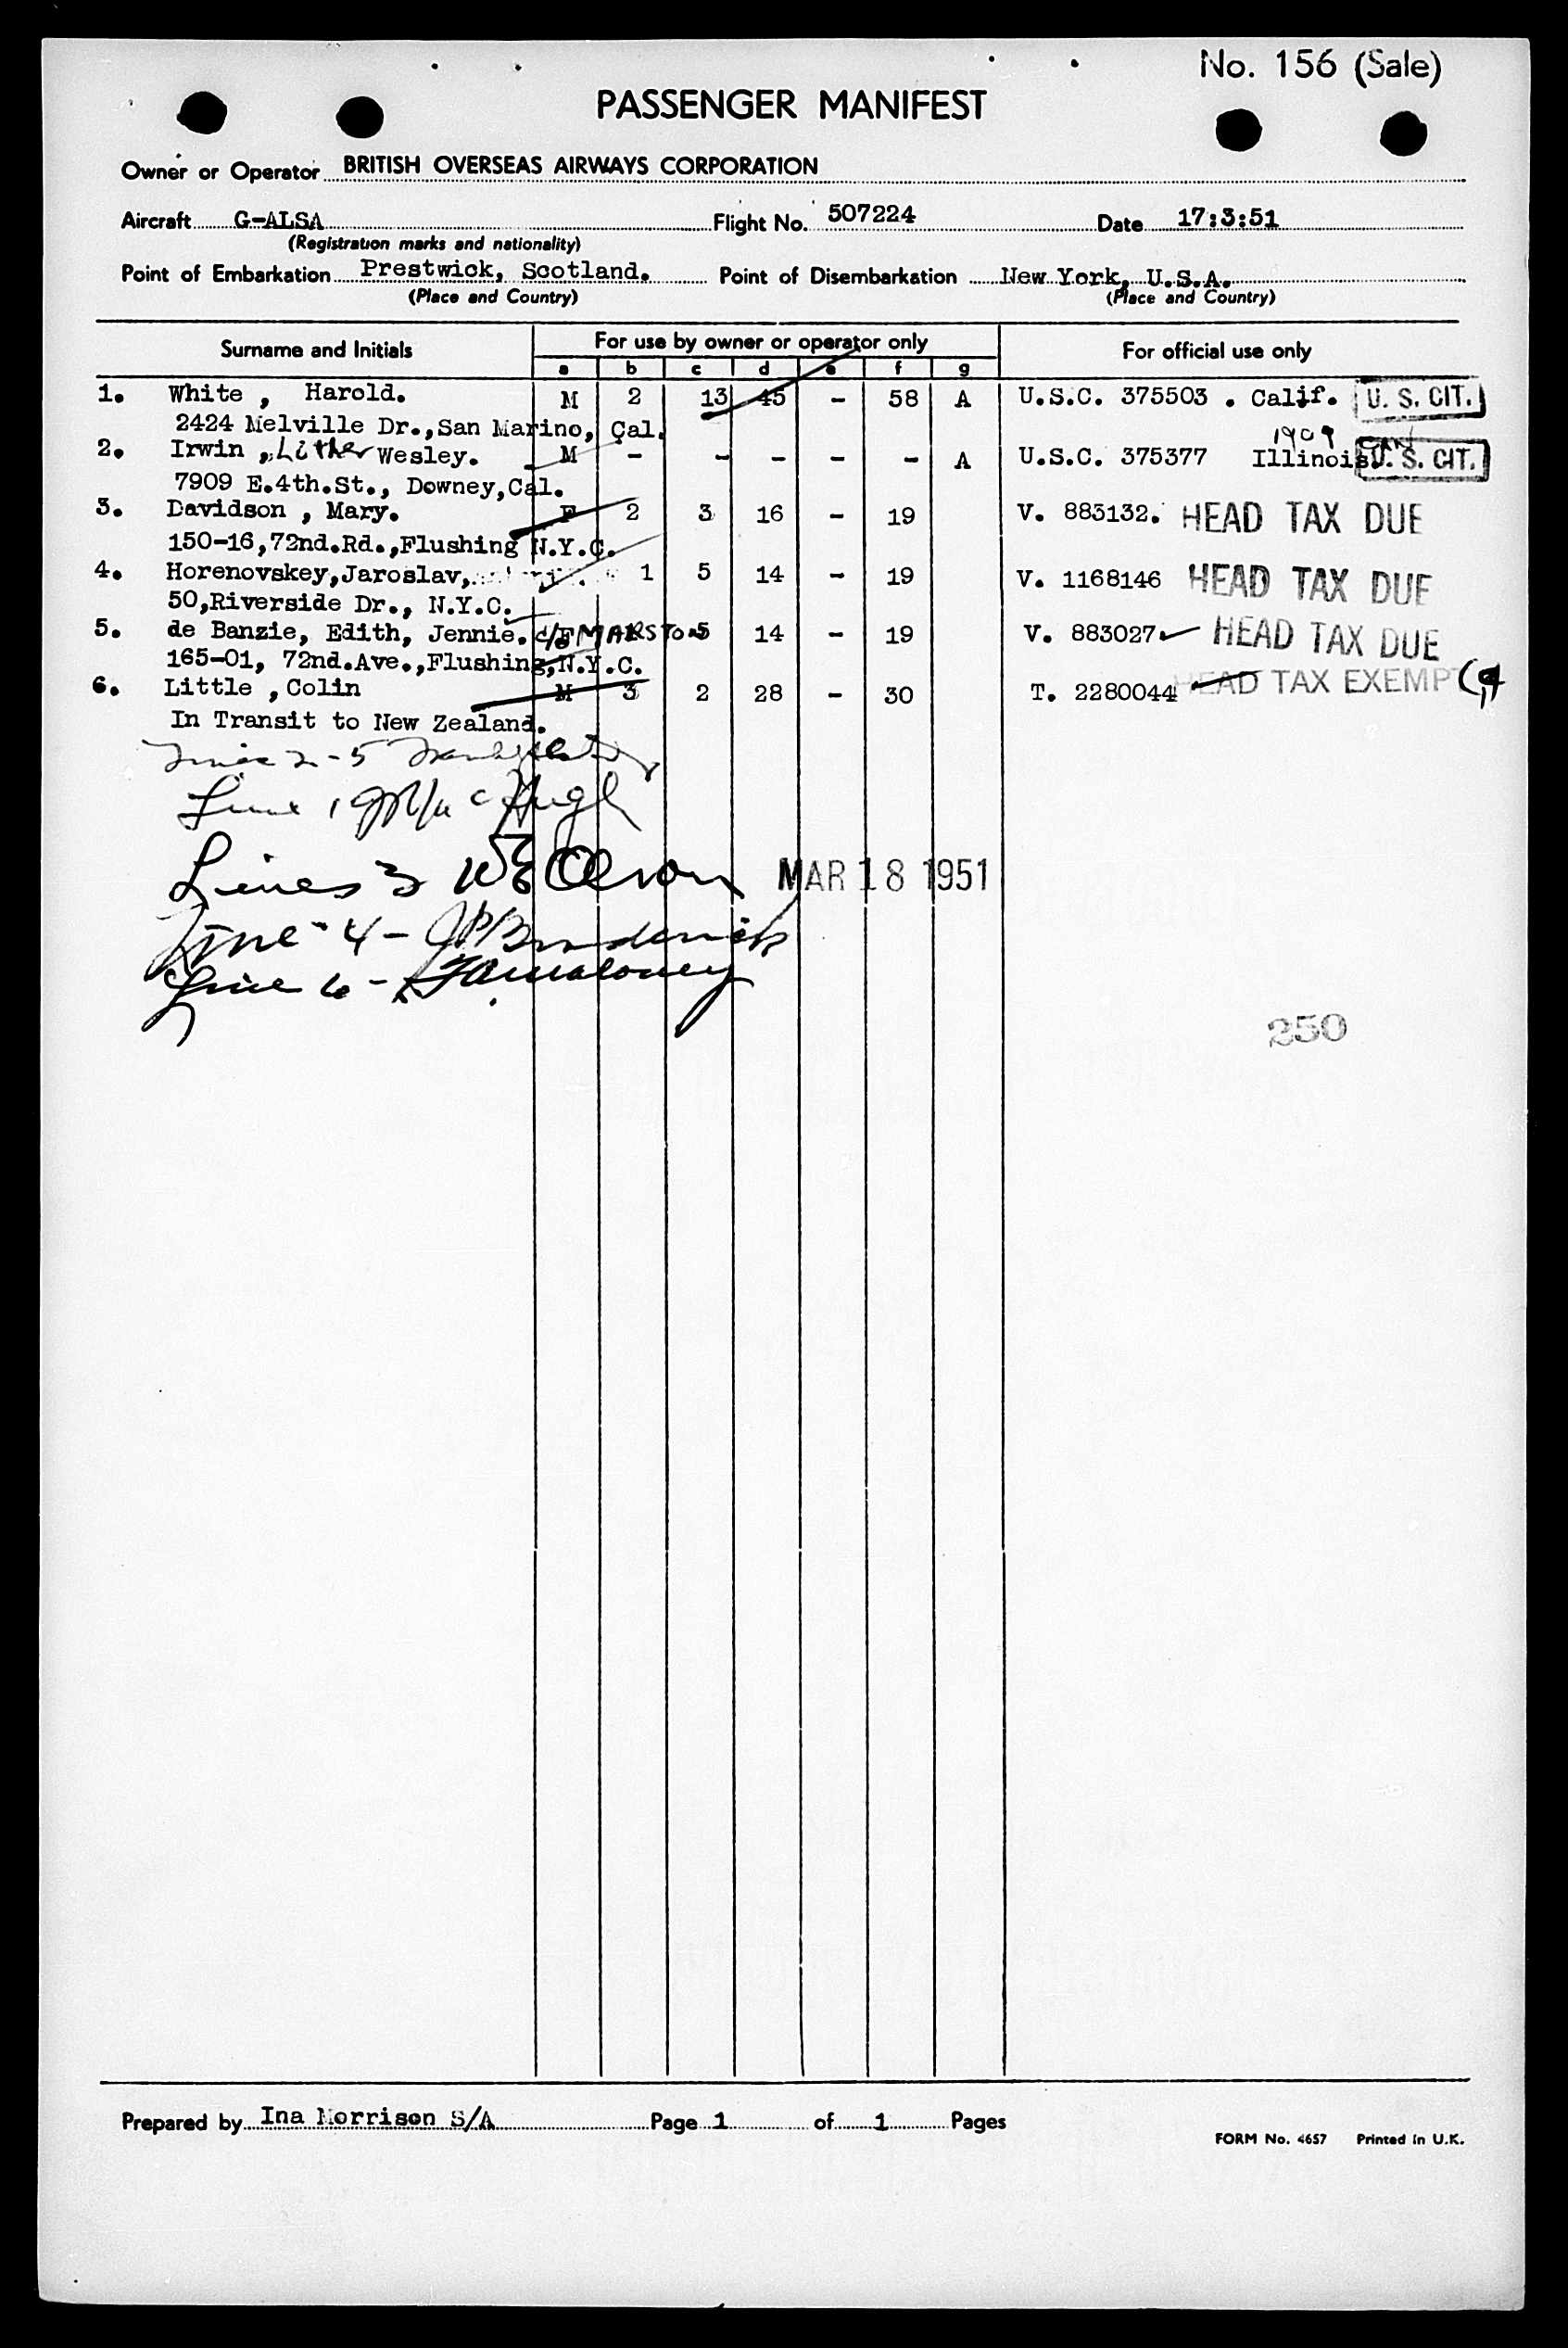 No. 156 (Sale)
PASSENGER MANIFEST
Owner or Operator BRITISH OVERSEAS AIRWAYS CORPORATION
Aircraft G-ALSA Flight No. 507224 Date 17:3:51
(Registration marks and nationality)
Point of Embarkation Prestwick, Scotland. Point of Disembarkation New York, U.S.A.
(Place and Country) (Place and Country)
Surname and Initials For use by owner or operator only For official use only
a b c d e f g
1. White , Harold. M 2 13 45 - 58 A U.S.C. 375503 . Calif. U. S. CIT.
2424 Melville Dr., San Marino, Cal.
1909
2. Irwin , Luther Wesley. M - - - - - A U.S.C. 375377 Illinois. U. S. CIT.
7909 E.4th.St., Downey, Cal.
3. Davidson , Mary. F 2 3 16 - 19 V. 883132. HEAD TAX DUE
150-16,72nd.Rd.,Flushing N.Y.C.
4. Horenovskey,Jaroslav, 1 5 14 - 19 V. 1168146 HEAD TAX DUE
50,Riverside Dr., N.Y.C.
5. de Banzie, Edith, Jennie. c/o F MARSTON 5 14 - 19 V. 883027 HEAD TAX DUE
165-01, 72nd.Ave.,Flushing,N.Y.C.
6. Little , Colin M 3 2 28 - 30 T. 2280044 HEAD TAX EXEMPT
In Transit to New Zealand.
2-5
Line 1
Lines 3 Olson MAR 18 1951
Line - 4 - JP Broderick
Line 6 - Maloney
250
Prepared by Ina Morrison S/A Page 1 of 1 Pages
FORM No. 4657 Printed in U.K.